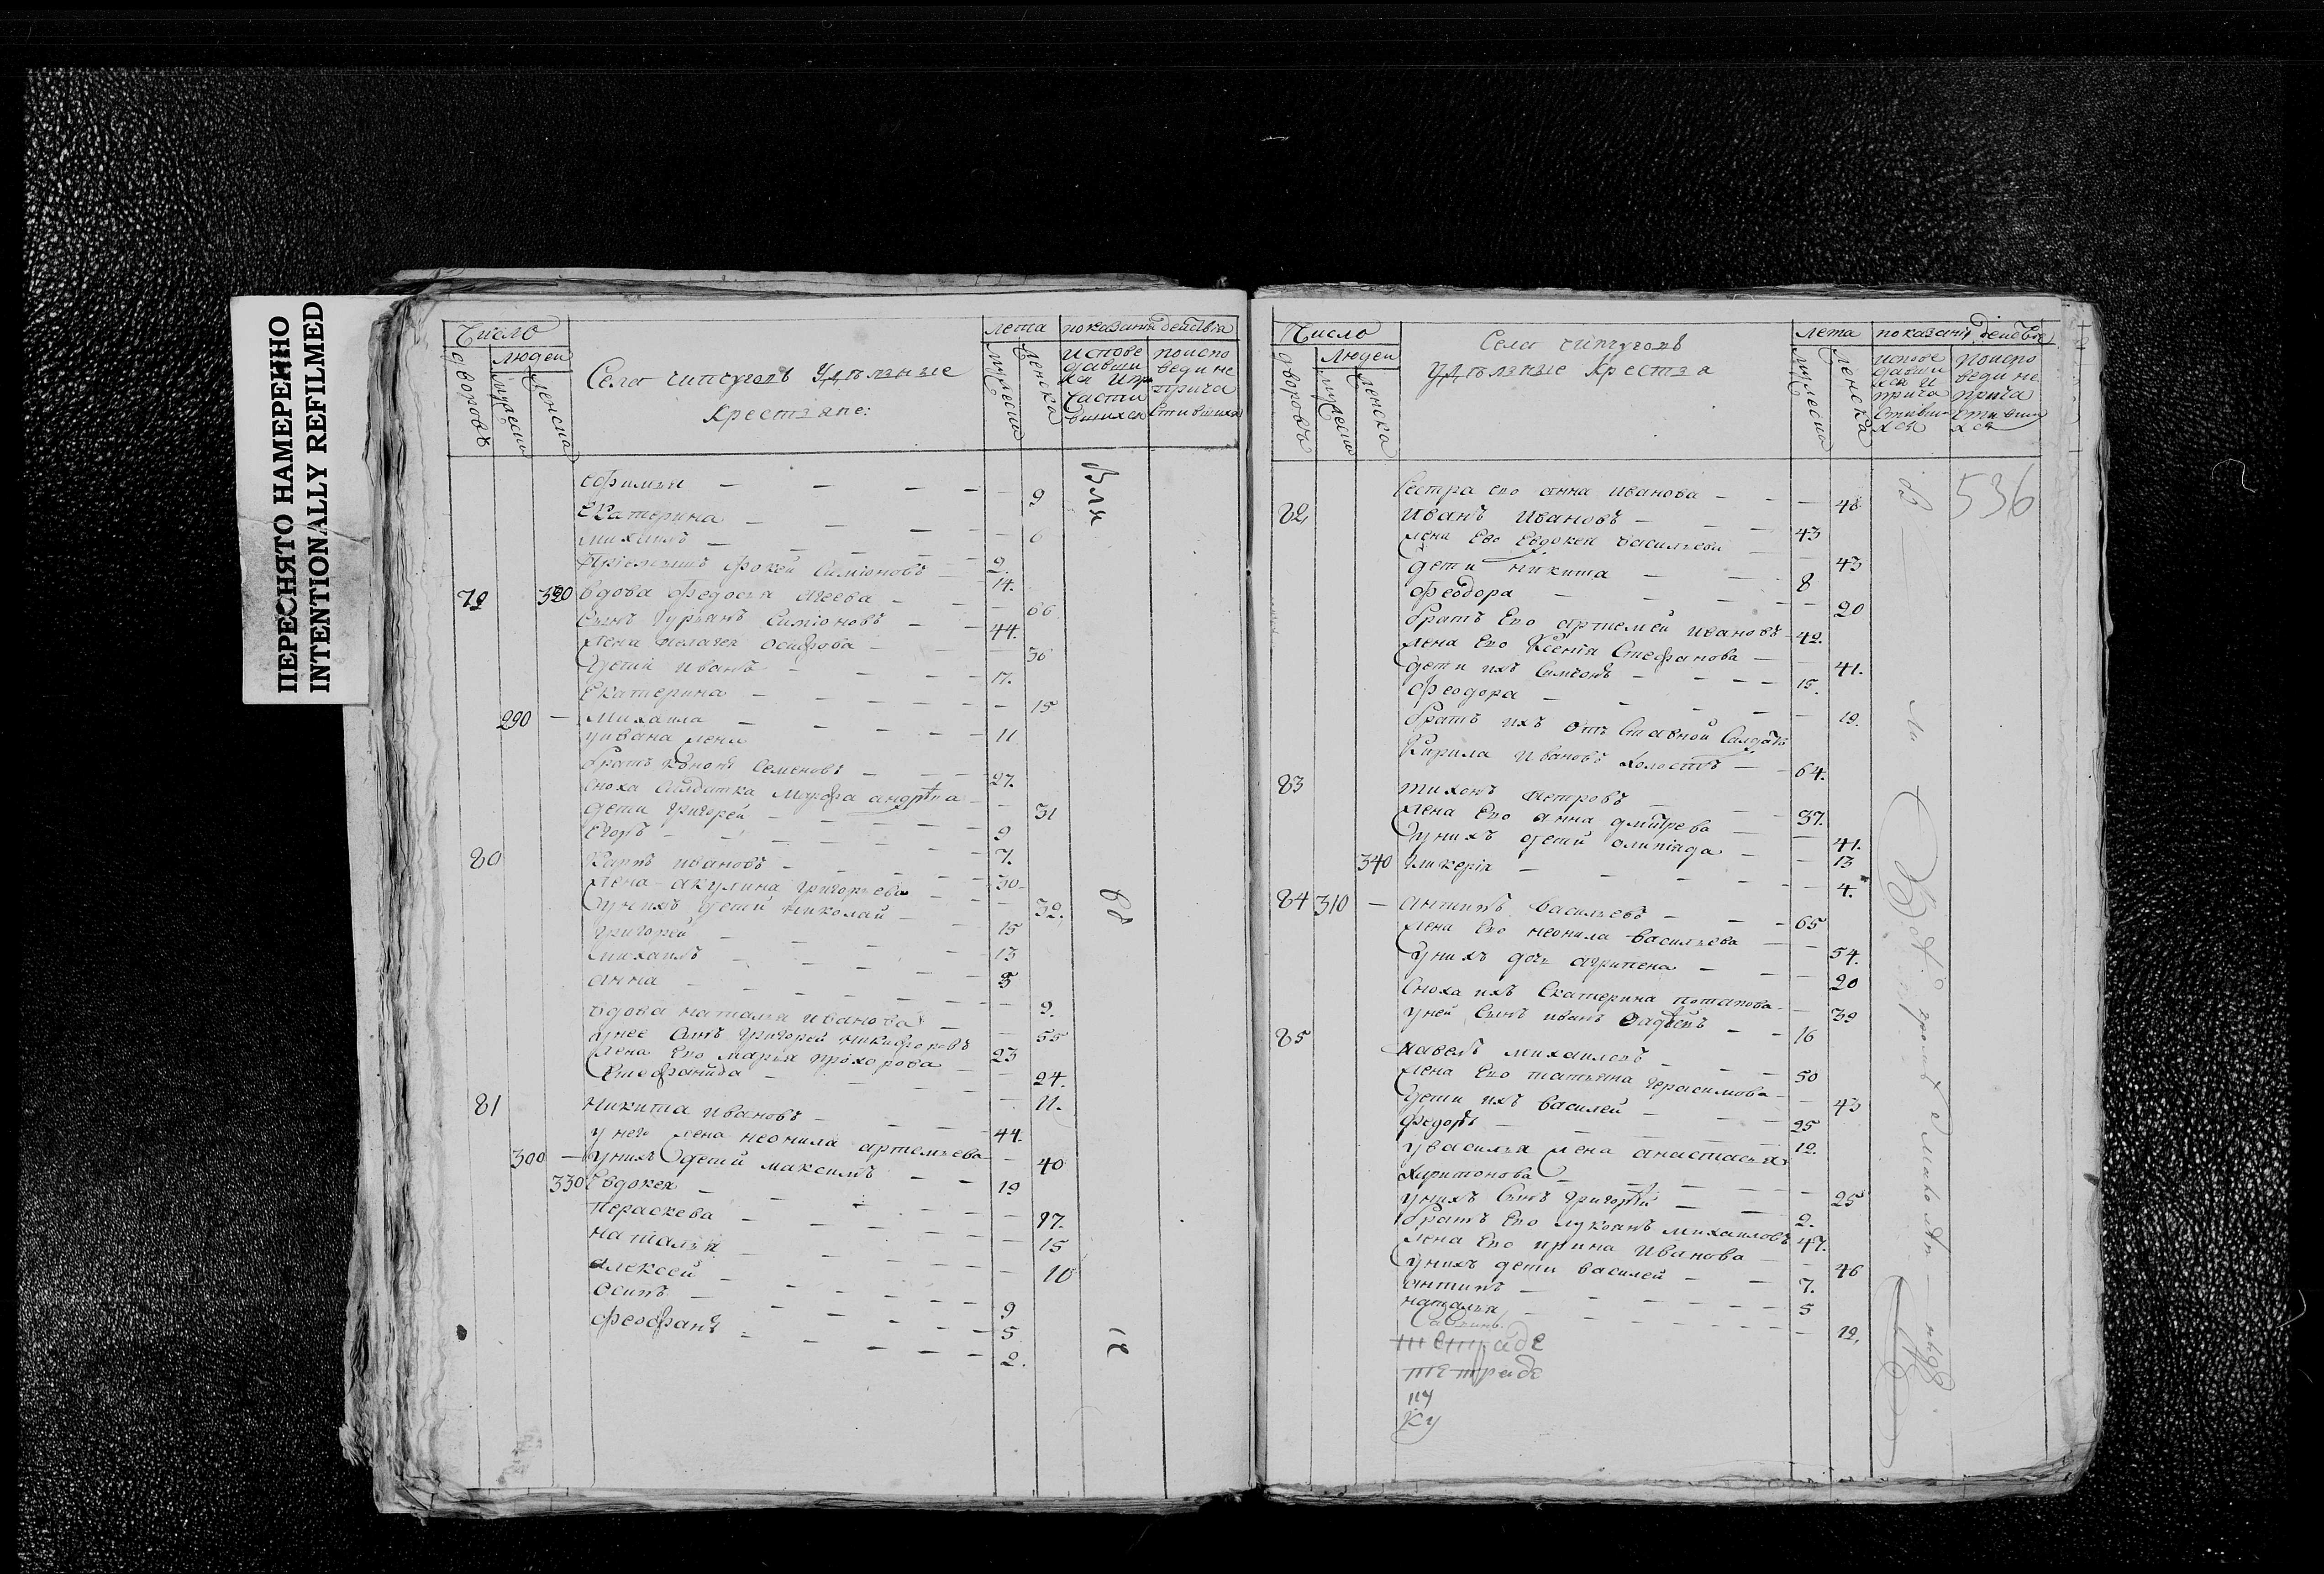 ПЕРЕСНЯТО НАМЕРЕННО
INTENTIONALLY REFILMED
Число
Людей
дворовъ
мужеска
женска
Села чипчуголъ Удѣльные
крестьяне:
лета
мужеска
женска
показаніи действія
испове
давши
хся и при
части
вшихся
поиспо
веди не
прича
стившихся
ефимья — 9
Екатерина — 6
михаилъ — 2.
фокей Симіоновъ — 14.
79 320 вдова Федосья агеева — 66
Сынъ Гурьянъ Симіоновъ — 44.
жена пелагея осифова — 36
дети иванъ — 17.
Екатерина — 15
290 — михаила — 11
уивана жена
братъ Семеновъ — 27.
сноха салдатка марфа андрѣва — 31
дети григорей — 9
егоръ — 7.
80 Карпъ ивановъ — 30
жена акулина григорьева — 32.
унихъ дети николай — 15
григорей — 13
михаилъ — 5
анна — 9.
вдова наталья иванова — 55
унее сынъ григорей никифоровъ 23
жена его марья прохорова — 24.
— 11.
81 никита ивановъ — 44.
у него жена неонила артемьева — 40
300 — унихъ дети максимъ — 19
330 Евдокея — 17.
параскева — 15
наталья — 10
алексей — 9
осипъ — 5
феофанъ — 2.
Число
Людей
дворовъ
мужеска
женска
Села чипчуголъ
удѣльные крестья
лета
мужеска
женска
показаніи действія
испове
давши
хся и
прича
стивши
хся
поиспо
веди не
прича
стивши
хся
536
Сестра его анна иванова — 48
82 иванъ ивановъ — 43
жена его евдокея васильева — 43
дети никита — 8
феодора — 20
братъ его артемей ивановъ 42.
жена его Ксенія Стефанова — 41.
дети ихъ Симеонъ — 15.
феодора — 19.
братъ ихъ отъ ставной салдатъ
Кирила ивановъ холостъ — 64.
83 тихонъ петровъ — 37.
жена его анна дмитрева — 41.
унихъ дети олипіада — 13
340 гликерія — 4.
84 310 — антипъ васильевъ — 65
жена его неонила васильева — 54.
унихъ дочь агрипена — 20
сноха ихъ Екатерина потапова — 39
уней сынъ иванъ — 16
85 павелъ михаиловъ — 50
жена его татьяна герасимова — 43
дети ихъ василей — 25
федоръ — 12.
увасилья жена анастасья
харитонова — 25
унихъ сынъ григорѣй — 2.
братъ его лукоянъ михаиловъ 47.
жена его ирина иванова — 46
унихъ дети василей — 7.
антипъ — 5
наталья — 12.
тетраде
тетраде
ну
Ку